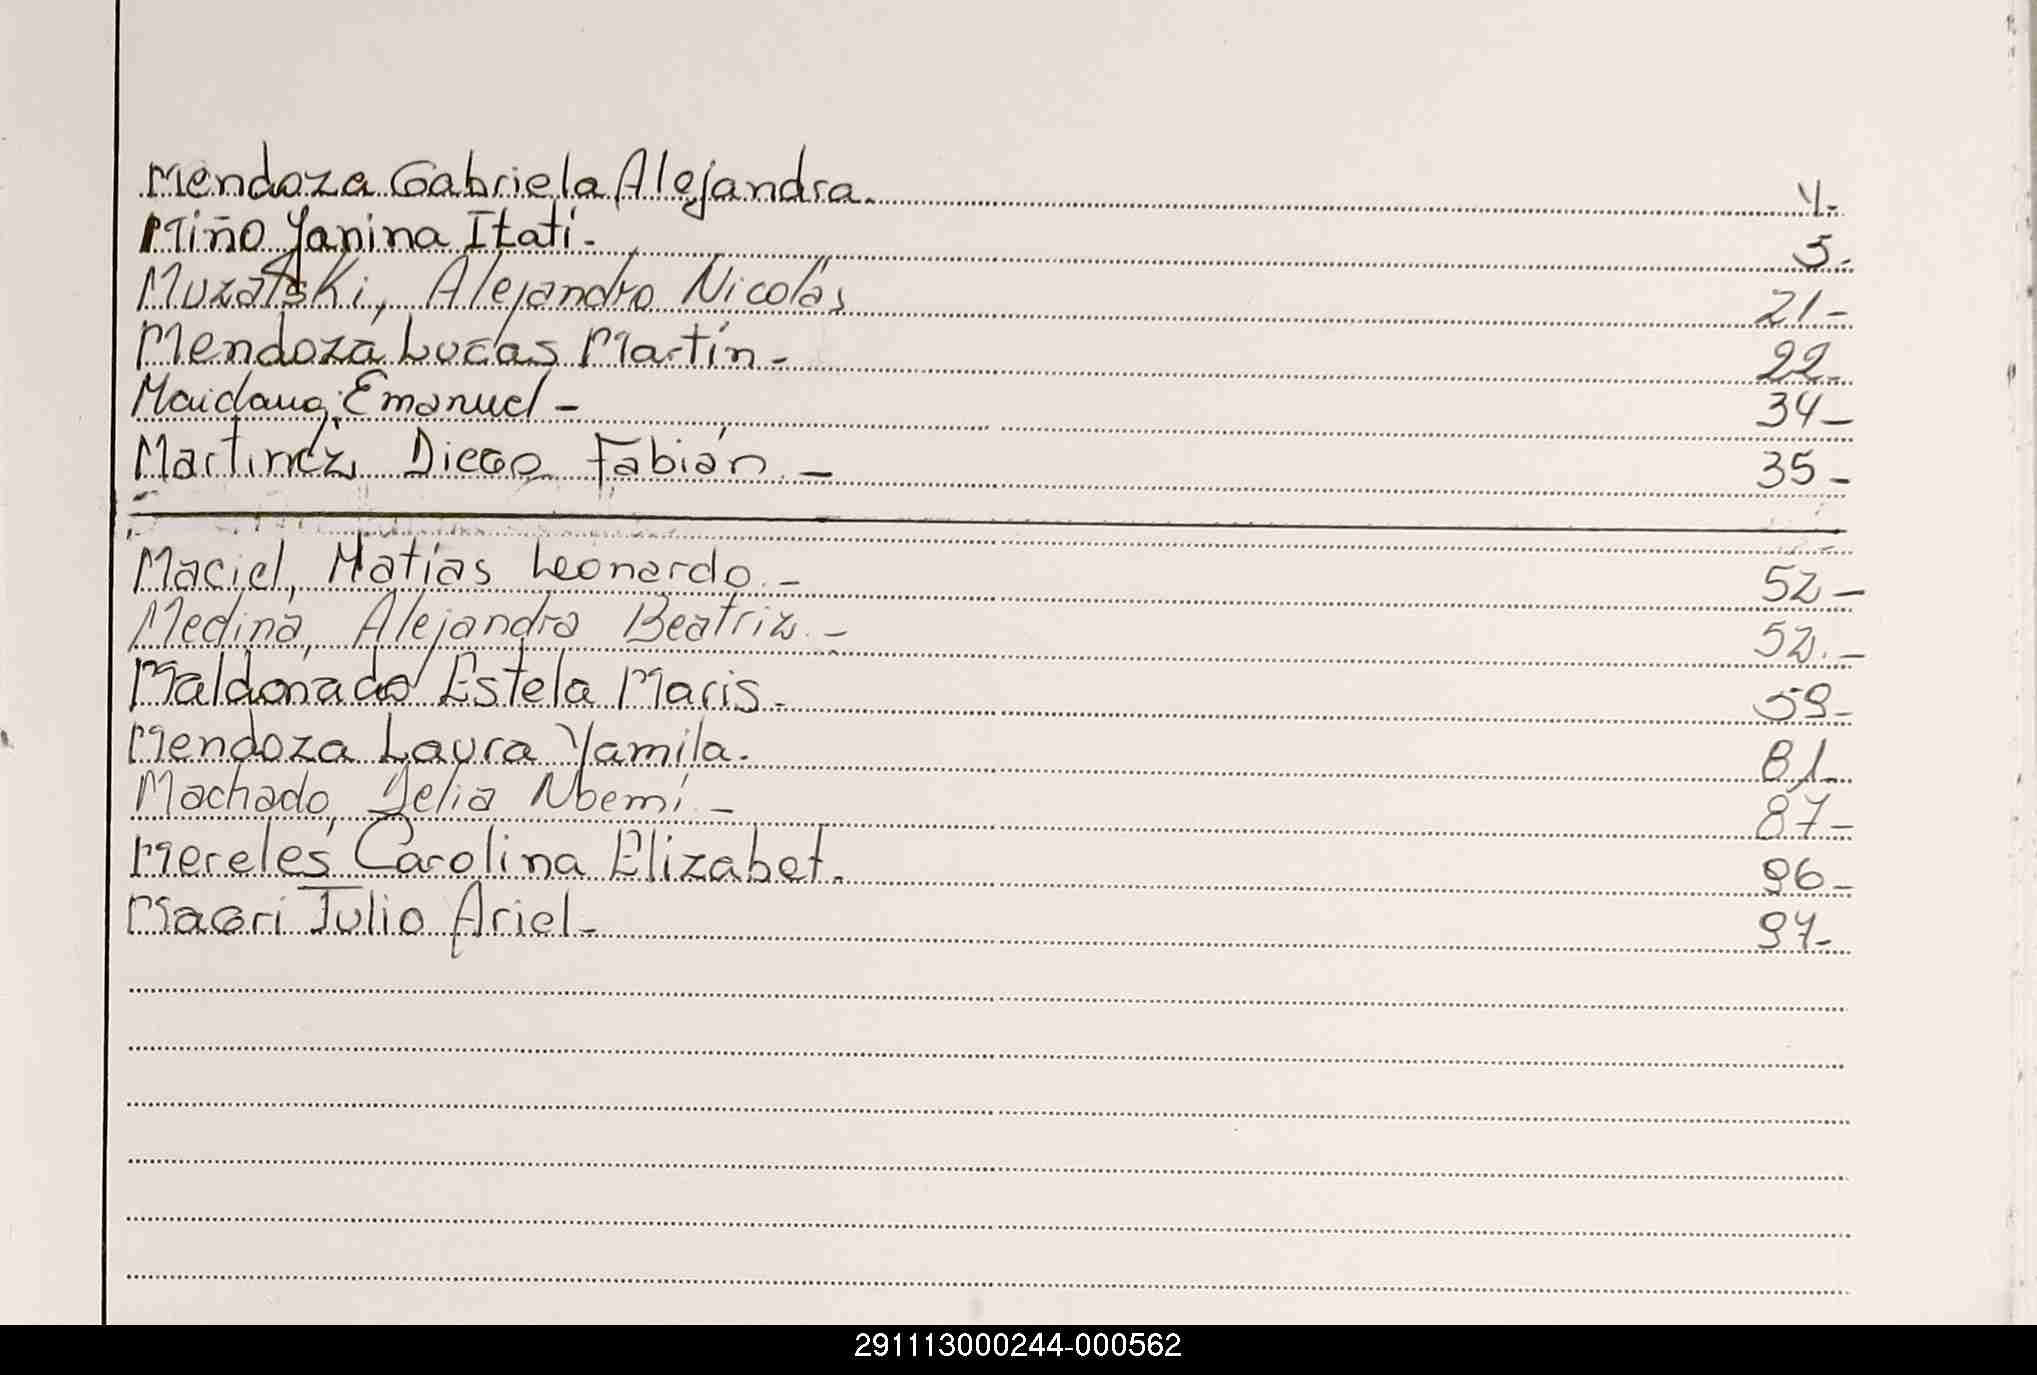 Mendoza Gabriela Alejandra. 4-
Miño Yanina Itatí- 5-
Muzatski, Alejandro Nicolás 21-
Mendoza Lucas Martín- 22-
Maidana, Emanuel- 34-
Martínez, Diego Fabián.- 35-
Maciel, Matías Leonardo.- 52-
Medina, Alejandra Beatriz.- 52.-
Maldonado Estela Maris- 59-
Mendoza Laura Yamila. 81-
Machado, Yelia Noemí.- 87-
Mereles Carolina Elizabet. 96-
Magri Julio Ariel- 97-
291113000244-000562